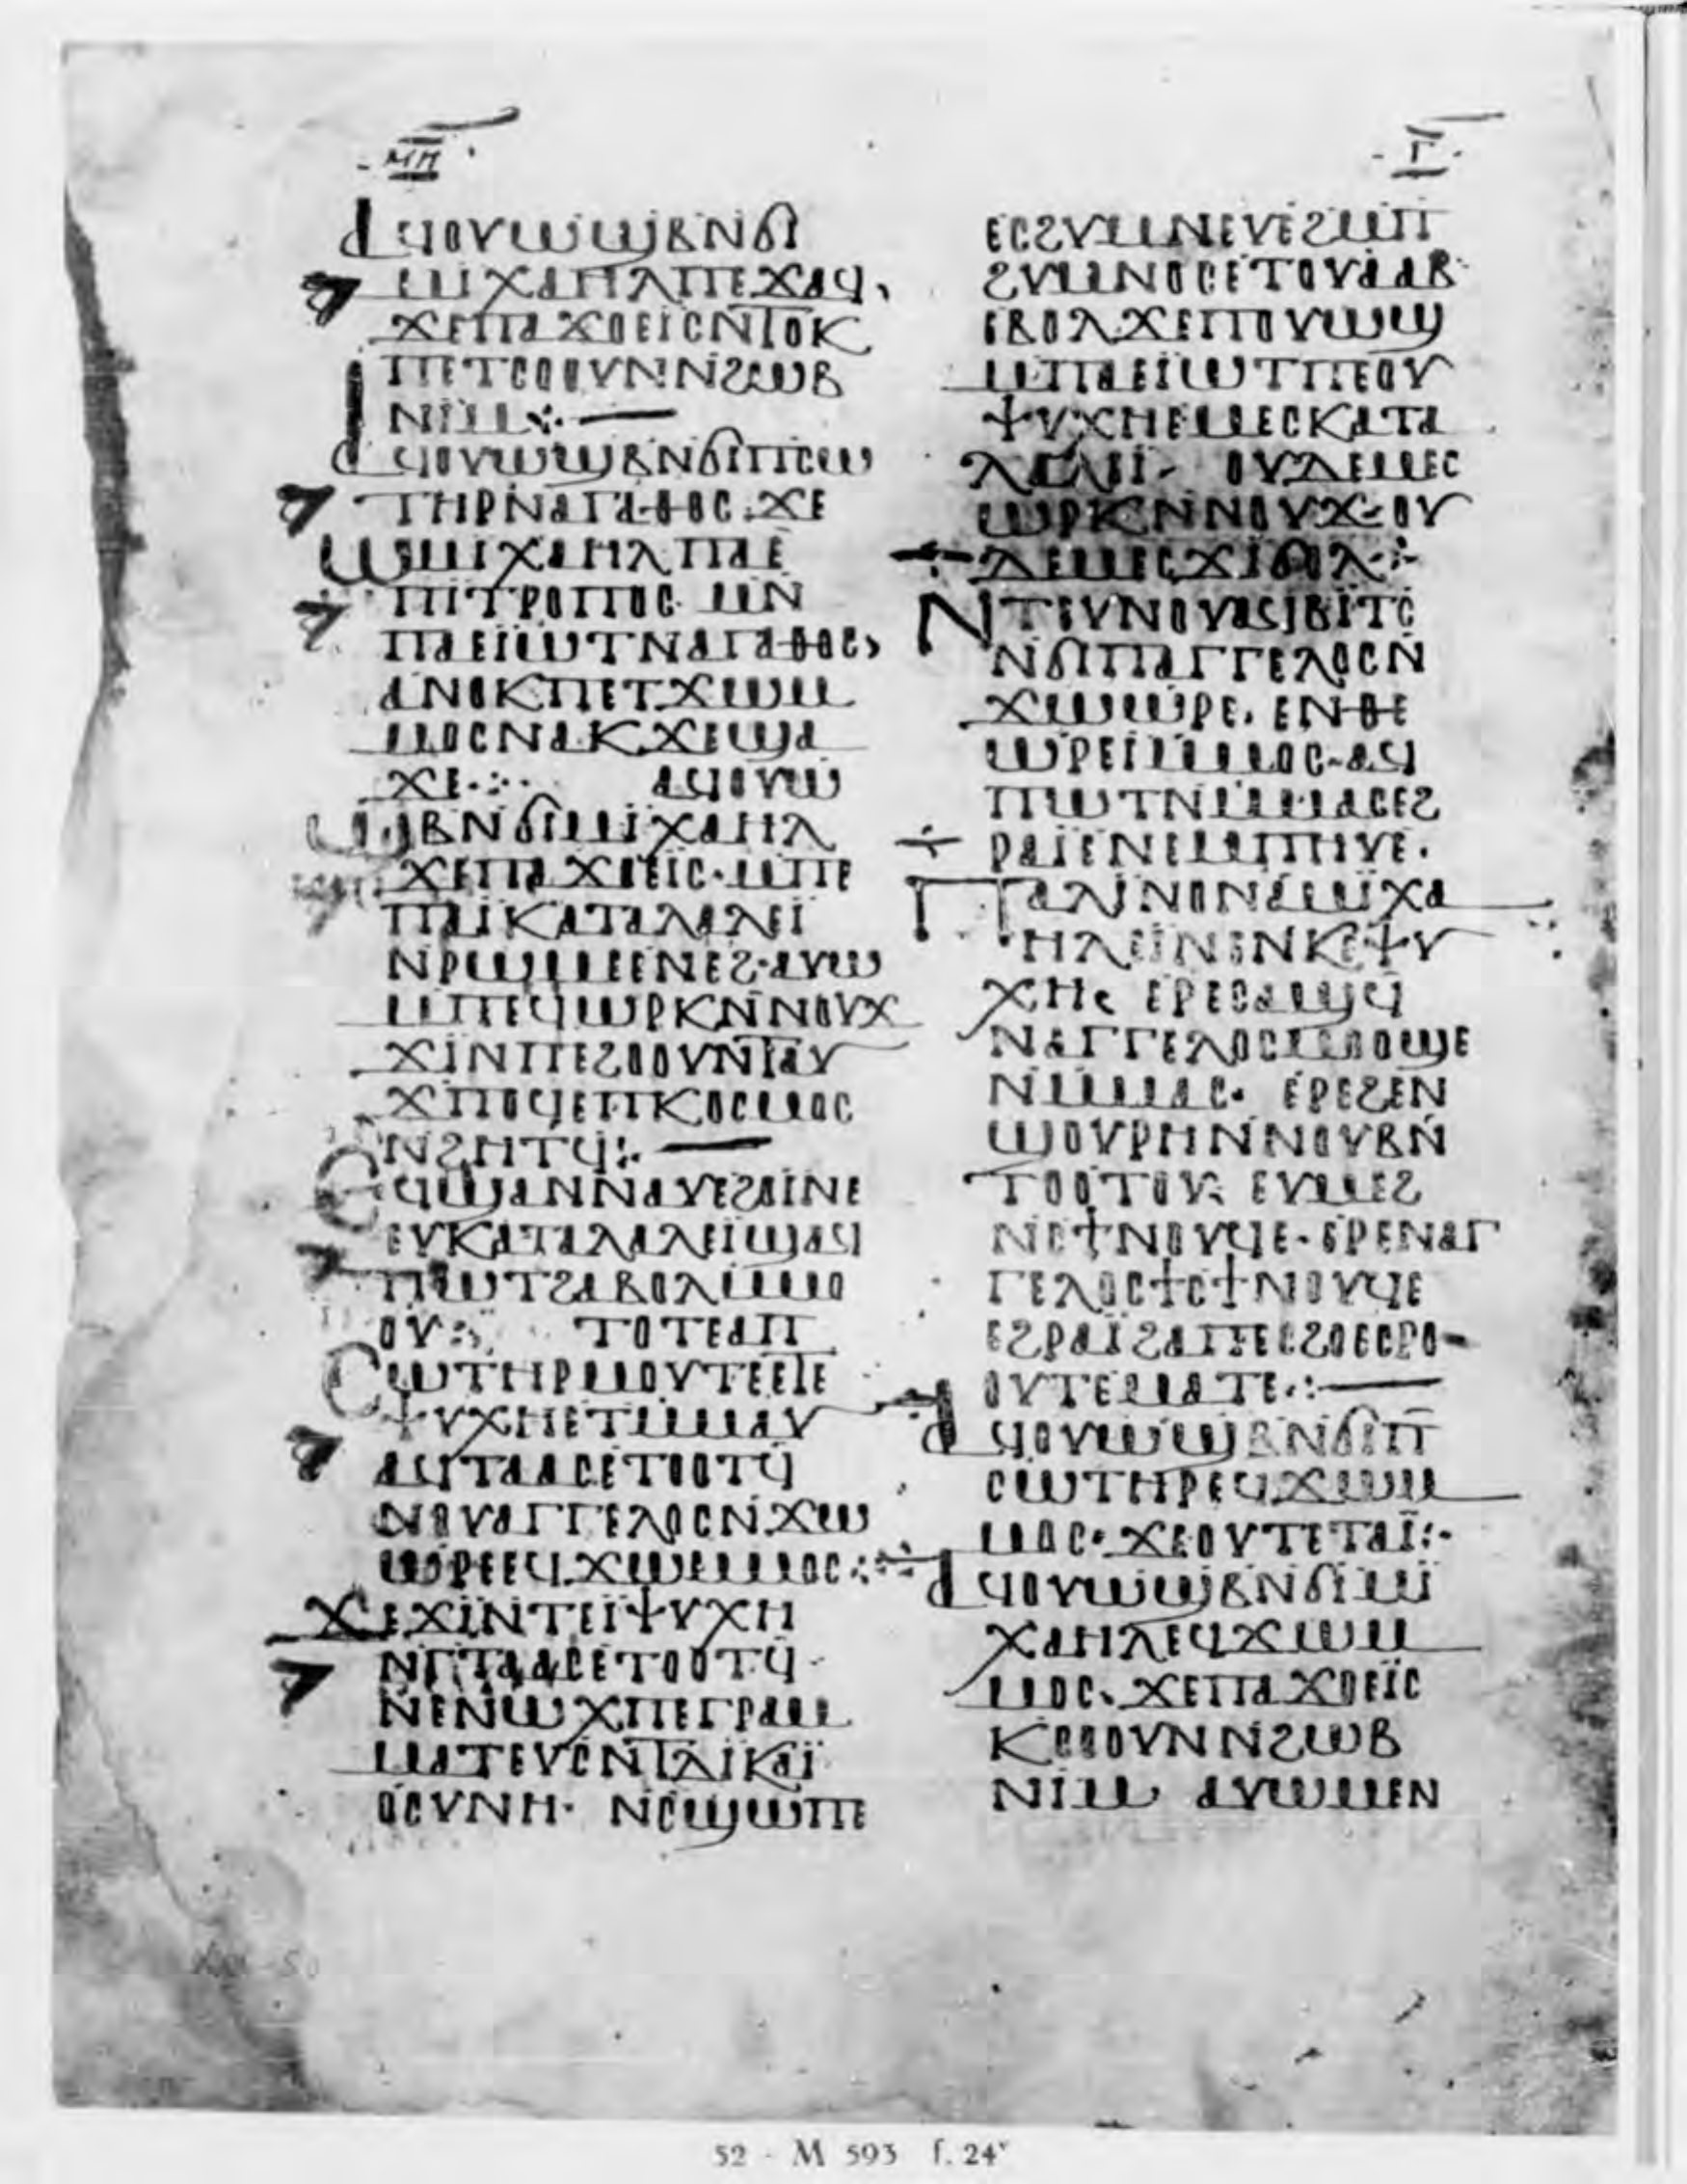 ⲙⲏ
ⲁϥⲟⲩⲱϣⲃⲛϭⲓ
ⲙⲓⲭⲁⲏⲗⲡⲉϫⲁϥ
ϫⲉⲡⲁϫⲟⲉⲓⲥⲛⲧⲟⲕ
ⲡⲉⲧⲥⲟⲟⲩⲛⲛϩⲱⲃ
ⲛⲓⲙ
ⲁϥⲟⲩⲱϣⲃⲛϭⲓⲡⲥⲱ
ⲧⲏⲣⲛⲁⲅⲁⲑⲟⲥ·ϫⲉ
ⲱⲙⲓⲭⲁⲏⲗⲡⲁⲉ
ⲡⲓⲧⲣⲟⲡⲟⲥ·ⲙⲛ
ⲡⲁⲉⲓⲱⲧⲛⲁⲅⲁⲑⲟⲥ
ⲁⲛⲟⲕⲡⲉⲧϫⲱⲙ
ⲙⲟⲥⲛⲁⲕϫⲉϣⲁ
ϫⲉ ⲁϥⲟⲩⲱ
ϣⲃⲛϭⲓⲙⲓⲭⲁⲏⲗ
ϫⲉⲡⲁϫⲟⲉⲓⲥ·ⲙⲡⲉ
ⲡⲁⲓⲕⲁⲧⲁⲗⲁⲗⲉⲓ
ⲛⲣⲱⲙⲉⲉⲛⲉϩ·ⲁⲩⲱ
ⲙⲡⲉϥⲱⲣⲕⲛⲛⲟⲩϫ
ϫⲓⲛⲡⲉϩⲟⲟⲩⲛⲧⲁⲩ
ϫⲡⲟϥⲉⲡⲕⲟⲥⲙⲟⲥ
ⲛϩⲏⲧϥ
ⲉϥϣⲁⲛⲛⲁⲩⲉϩⲟⲓⲛⲉ
ⲉⲩⲕⲁⲧⲁⲗⲁⲗⲉⲓϣⲁϥ
ⲡⲱⲧⲥⲁⲃⲟⲗⲙⲙⲟ
ⲟⲩ ⲧⲟⲧⲉⲁⲡ
ⲥⲱⲧⲏⲣⲙⲟⲩⲧⲉⲉⲧⲉ
ⲯⲩⲭⲏⲉⲧⲙⲙⲁⲩ
ⲁϥⲧⲁⲁⲥⲉⲧⲟⲟⲧϥ
ⲛⲟⲩⲁⲅⲅⲉⲗⲟⲥⲛϫⲱ
ⲱⲣⲉⲉϥϫⲱⲙⲙⲟⲥ
ϫⲉϫⲓⲛⲧⲉⲓⲯⲩⲭⲏ
ⲛⲅⲧⲁⲁⲥⲉⲧⲟⲟⲧϥ
ⲛⲉⲛⲱⲭⲡⲉⲅⲣⲁⲙ
ⲙⲁⲧⲉⲩⲥⲛⲧⲇⲓⲕⲁⲓ
ⲟⲥⲩⲛⲏ· ⲛⲥϣⲱⲡⲉ
ⲅ
ⲉⲥϩⲩⲙⲛⲉⲩⲉϩⲙⲡ
ϩⲩⲙⲛⲟⲥⲉⲧⲟⲩⲁⲁⲃ
ⲉⲃⲟⲗϫⲉⲡⲟⲩⲱϣ
ⲙⲡⲁⲉⲓⲱⲧⲡⲉⲟⲩ
ⲯⲩⲭⲏⲉⲙⲉⲥⲕⲁⲧⲁ
ⲗⲁⲗⲓ· ⲟⲩⲇⲉⲙⲉⲥ
ⲱⲣⲕⲛⲛⲟⲩϫ·ⲟⲩ
ⲇⲉⲙⲉⲥϫⲓϭⲟⲗ
ⲛⲧⲉⲩⲛⲟⲩⲁϥϥⲓⲧⲥ
ⲛϭⲓⲡⲁⲅⲅⲉⲗⲟⲥⲛ
ϫⲱⲱⲣⲉ·ⲉⲛⲑⲉ
ⲱⲣⲉⲓⲙⲙⲟⲥ·ⲁϥ
ⲡⲱⲧⲛⲙⲙⲁⲥⲉϩ
ⲣⲁⲓⲉⲛⲉⲙⲡⲏⲩⲉ·
ⲡⲁⲗⲓⲛⲟⲛⲁⲙⲓⲭⲁ
ⲏⲗⲉⲓⲛⲉⲛⲕⲉⲯⲩ
ⲭⲏ ⲉⲣⲉⲥⲁϣϥ
ⲛⲁⲅⲅⲉⲗⲟⲥⲙⲟⲟϣⲉ
ⲛⲙⲙⲁⲥ· ⲉⲣⲉϩⲉⲛ
ϣⲟⲩⲣⲏⲛⲛⲟⲩⲃⲛ
ⲧⲟⲟⲧⲟⲩ· ⲉⲩⲙⲉϩ
ⲛⲥϯⲛⲟⲩϥⲉ·ⲉⲣⲉⲛⲁⲅ
ⲅⲉⲗⲟⲥϯⲥϯⲛⲟⲩϥⲉ
ⲉϩⲣⲁⲓϩⲁⲡⲉⲥϩⲟⲉⲥⲣⲟ
ⲟⲩⲧⲉⲙⲁⲧⲉ
ⲁϥⲟⲩⲱϣⲃⲛϭⲓⲡ
ⲥⲱⲧⲏⲣⲉϥϫⲱⲙ
ⲙⲟⲥ·ϫⲉⲟⲩⲧⲉⲧⲁⲓ
ⲁϥⲟⲩⲱϣⲃⲛϭⲓⲙⲓ
ⲭⲁⲏⲗⲉϥϫⲱⲙ
ⲙⲟⲥ·ϫⲉⲡⲁϫⲟⲉⲓⲥ
ⲕⲥⲟⲟⲩⲛⲛϩⲱⲃ
ⲛⲓⲙ ⲁⲩⲱⲙⲉⲛ
52 - M 593 f. 24ᵛ